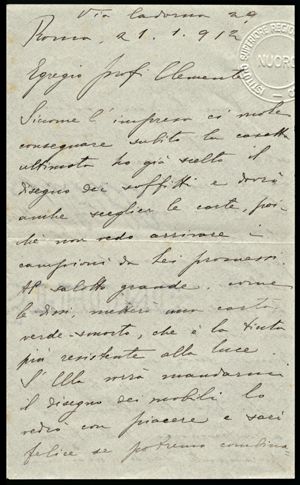 Via Cadorna 29,
Roma, 21. 1. 912
ISTITUTO SUPERIORE REGIO
NUORO
Egregio Prof Clemente
Siccome l'impresa ci vuole
consegnare subito la casetta
ultimata ho già scelto il
disegno dei soffitti e dovrò
anche sceglier le carte, poi
chè non vedo arrivare i
campioni da Lei promessi.
Al salotto grande, come
le dissi, metterò una carta
verde-smorto, che è la tinta
più resistente alla luce.
S'Ella vorrà mandarmi
il disegno dei mobili lo
vedrò con piacere e sarò
felice se potremo combina-